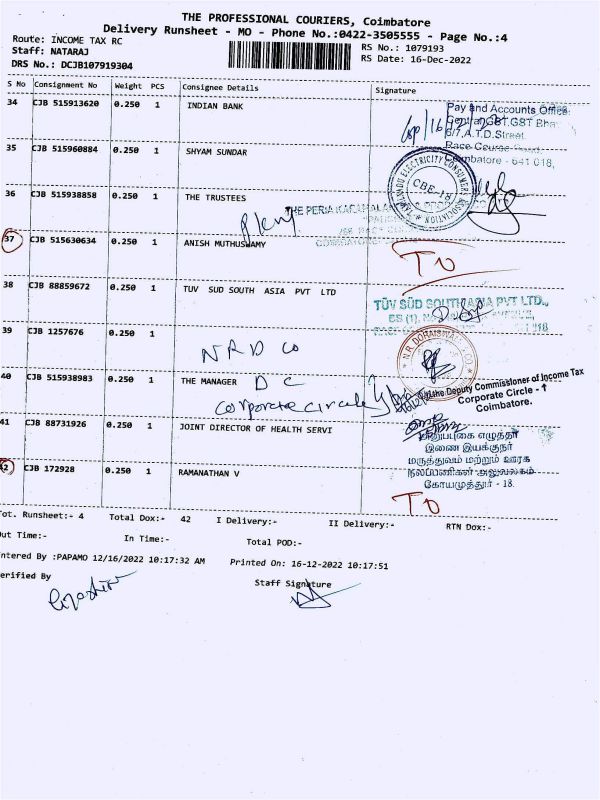 THE PROFESSIONAL COURIERS, Coimbatore
Delivery Runsheet - MO - Phone No.:0422-3505555 - Page No.:4
Route: INCOME TAX RC
RS No.: 1079193
Staff: NATARAJ
RS Date: 16-Dec-2022
DRS No.: DCJB107919304
S No Consignment No Weight PCS Consignee Details Signature
34 CJB 515913620 0.250 1 INDIAN BANK
Pay and Accounts Office
Central GST, GST Bha
6/7, A.T.D. Street
Race Course Road,
Coimbatore - 641 018,
35 CJB 515960884 0.250 1 SHYAM SUNDAR
TAMILNADU ELECTRICITY CONSUMERS ASSOCIATION
CBE-18
36 CJB 515938858 0.250 1 THE TRUSTEES
THE PERIA
37 CJB 515630634 0.250 1 ANISH MUTHUSWAMY
TO
38 CJB 88859672 0.250 1 TUV SUD SOUTH ASIA PVT LTD
TÜV SÜD SOUTH ASIA PVT LTD.,
39 CJB 1257676 0.250 1
NRD Co
N.R. DORAISWAMY & CO
40 CJB 515938983 0.250 1 THE MANAGER
D C
Corporate circle 1
the Deputy Commissioner of Income Tax
Corporate Circle - 1
Coimbatore.
41 CJB 88731926 0.250 1 JOINT DIRECTOR OF HEALTH SERVI
எழுத்தர்
இணை இயக்குநர்
மருத்துவம் மற்றும் ஊரக
நலப்பணிகள் அலுவலகம்
கோயமுத்தூர் - 18.
42 CJB 172928 0.250 1 RAMANATHAN V
TO
Tot. Runsheet:- 4 Total Dox:- 42 I Delivery:- II Delivery:- RTN Dox:-
Out Time:- In Time:- Total POD:-
ntered By :PAPAMO 12/16/2022 10:17:32 AM Printed On: 16-12-2022 10:17:51
erified By Staff Signature